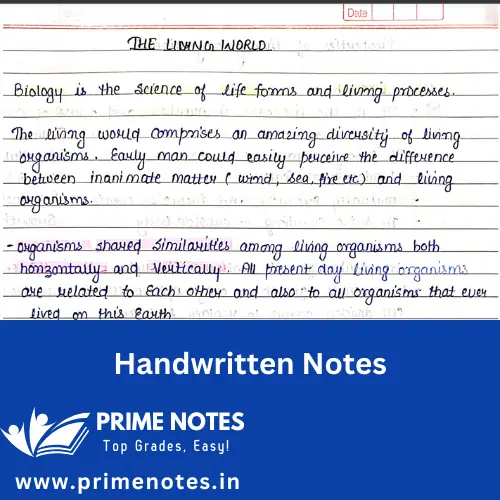 Date
THE LIVING WORLD.
Biology is the science of life forms and living processes.
The living world comprises an amazing diversity of living
organisms. Early man could easily perceive the difference
between inanimate matter ( wind, sea, fire etc) and living
organisms.
- organisms shared similarities among living organisms both
horizontally and vertically. All present day living organisms
are related to each other and also to all organisms that ever
lived on this Earth
Handwritten Notes
PRIME NOTES
Top Grades, Easy!
www.primenotes.in